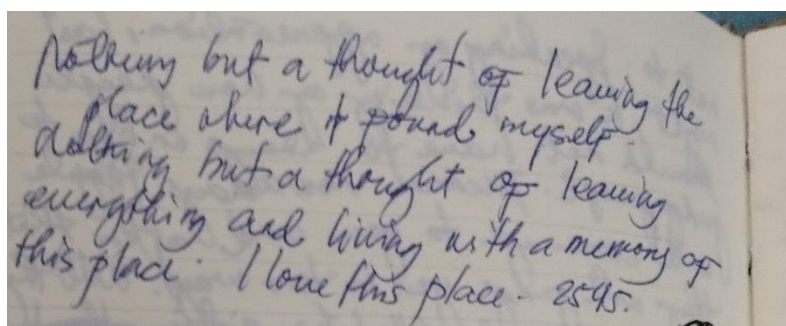 Nothing but a thought of leaving the
place where I found myself.
Nothing but a thought of leaving
everything and living with a memory of
this place. I love this place. 2545.